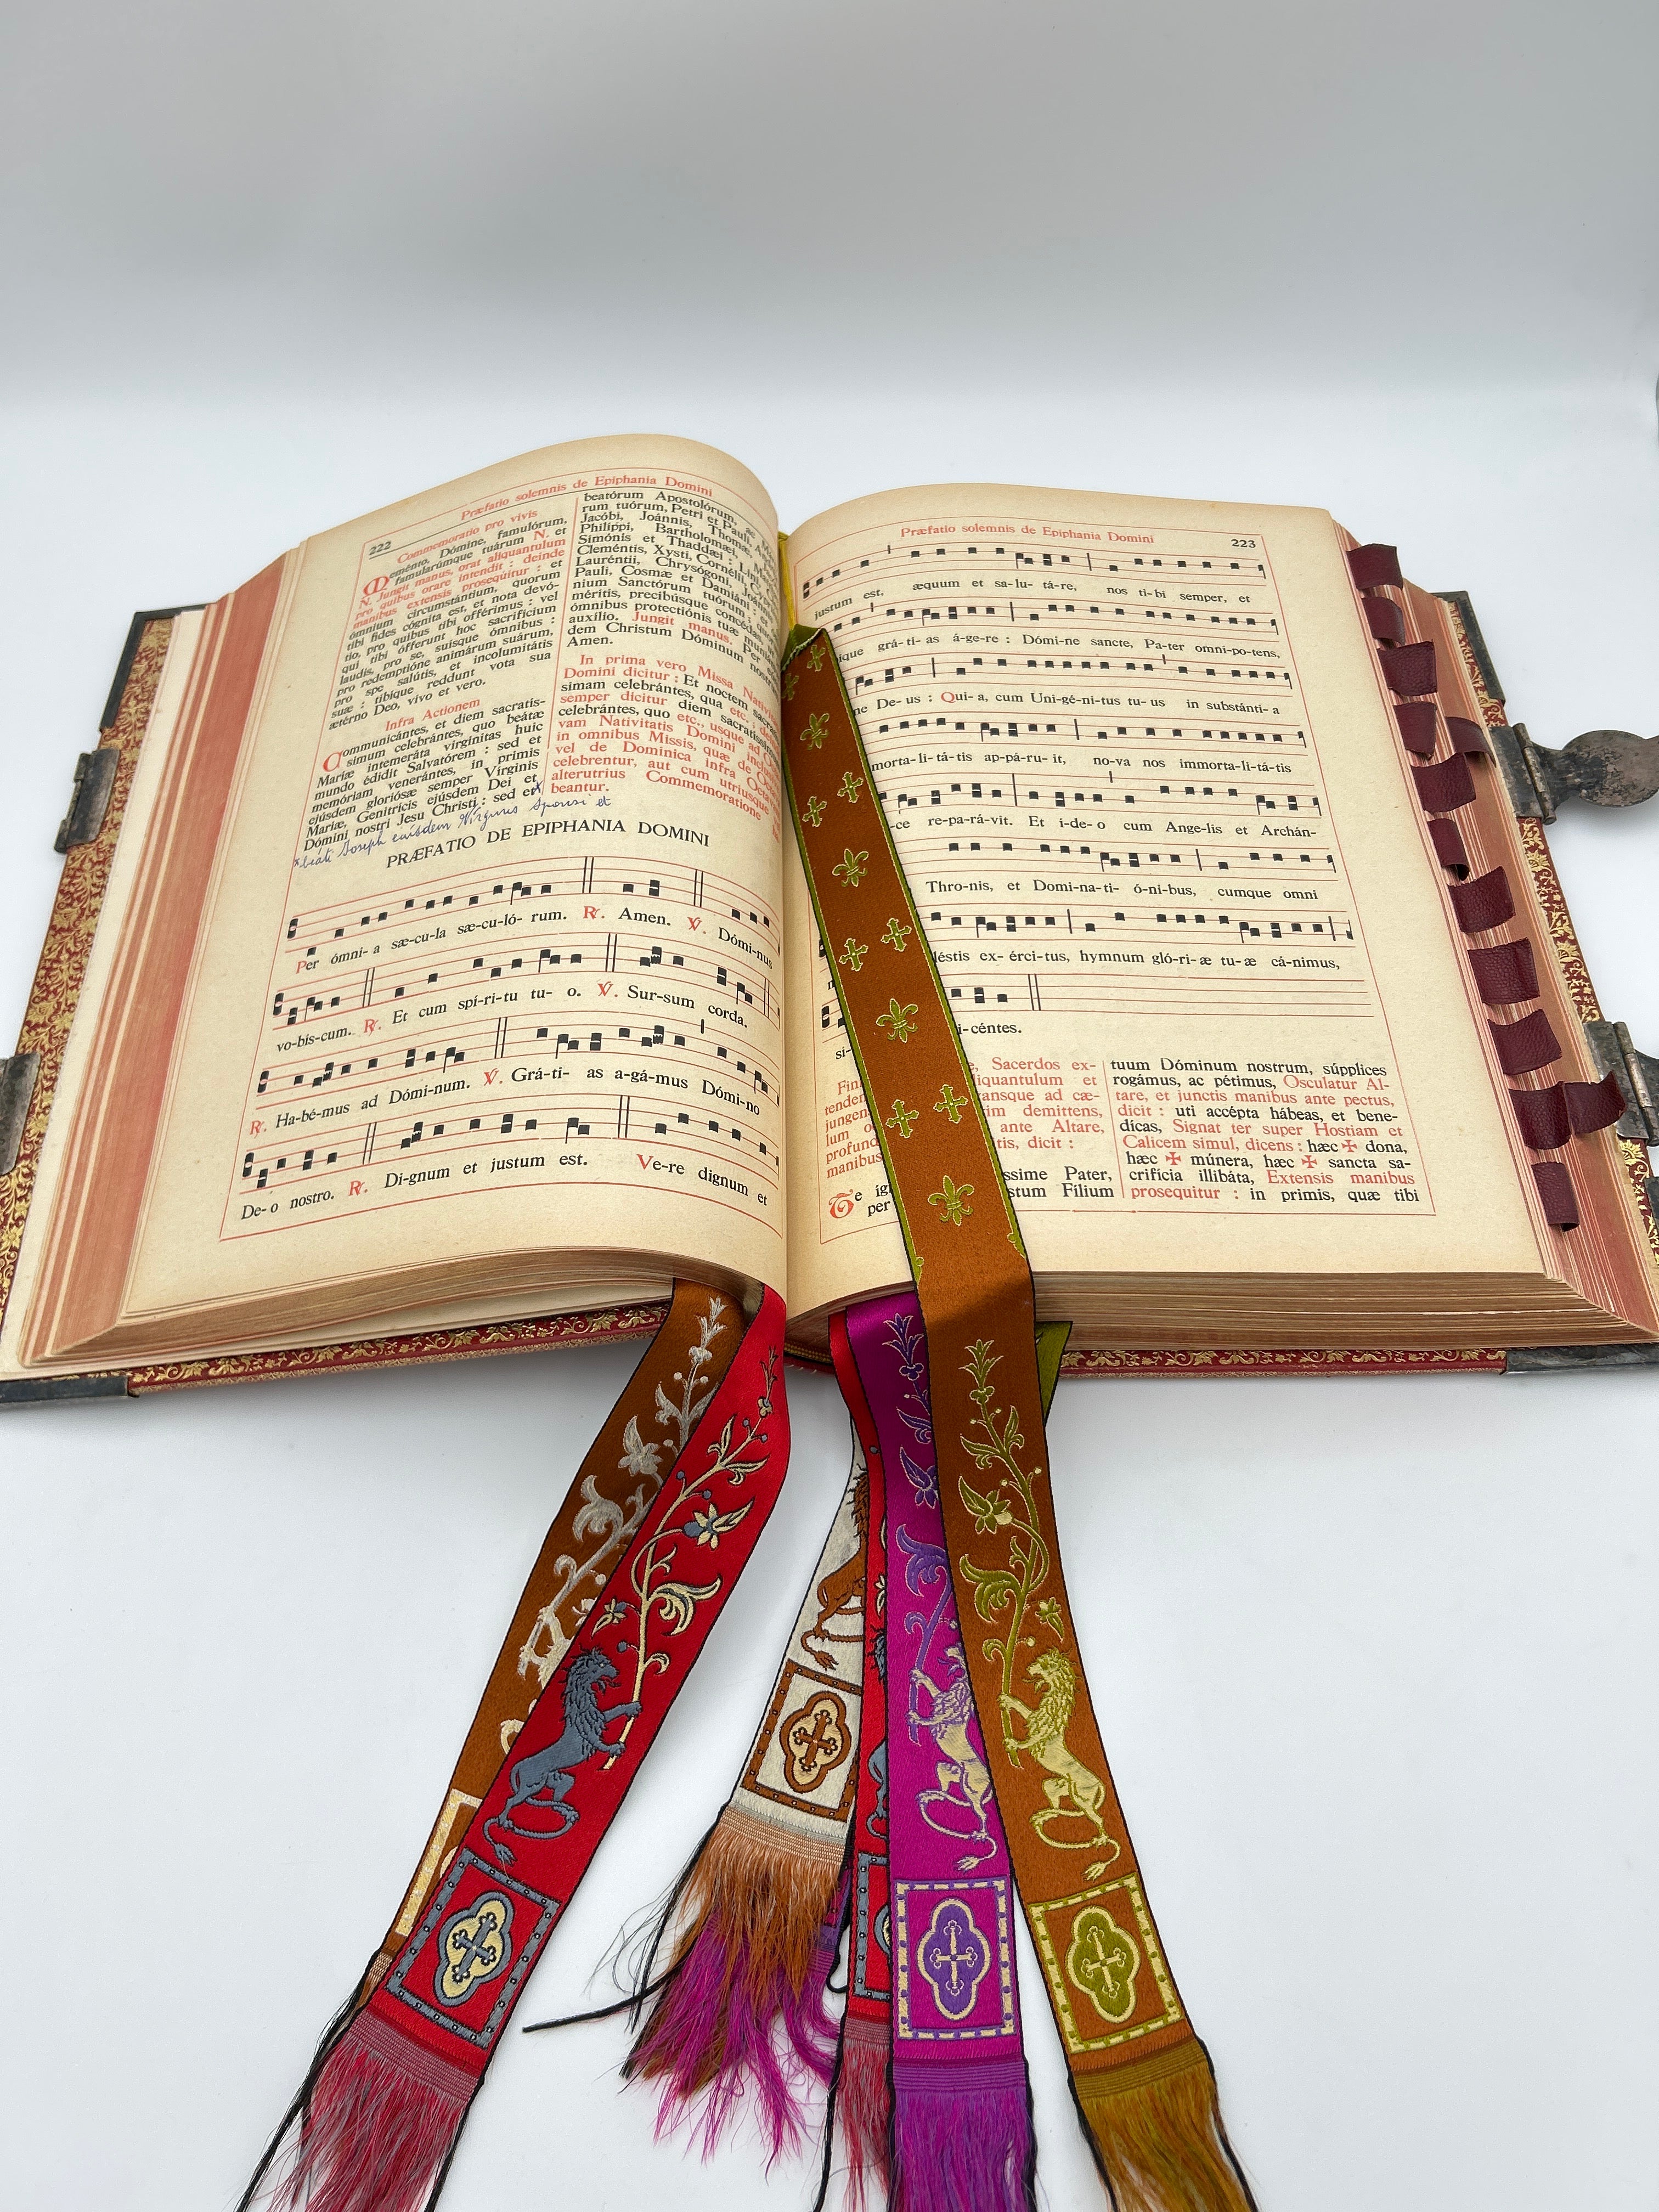 Præfatio solemnis de Epiphania Domini
222
Commemoratio pro vivis
Meménto, Dómine, famulórum,
famularúmque tuárum N. et
N. Jungit manus, orat aliquantulum
pro quibus orare intendit : deinde
manibus extensis prosequitur : et
ómnium circumstántium, quorum
tibi fides cógnita est, et nota devó-
tio, pro quibus tibi offérimus : vel
qui tibi ófferunt hoc sacrifícium
laudis, pro se, suisque ómnibus :
pro redemptióne animárum suárum,
pro spe salútis, et incolumitátis
suæ : tibique reddunt vota sua
ætérno Deo, vivo et vero.
Infra Actionem
Communicántes, et diem sacratís-
simum celebrántes, quo beátæ
Maríæ intemeráta virgínitas huic
mundo édidit Salvatórem : sed et
memóriam venerántes, in primis
ejúsdem gloriósæ semper Vírginis
Maríæ, Genitrícis ejúsdem Dei et
Dómini nostri Jesu Christi : sed et
beáti Joseph eiúsdem Vírginis Sponsi et
beatórum Apostolórum, ac
rum tuórum, Petri et Pauli,
Jacóbi, Joánnis, Thomæ,
Philíppi, Bartholomǽi,
Simónis et Thaddǽi : Lini,
Cleméntis, Xysti, Cornélii,
Lauréntii, Chrysógoni,
Pauli, Cosmæ et Damiáni :
nium Sanctórum tuórum ;
méritis, precibúsque concédas,
ómnibus protectiónis tuæ
auxílio. Jungit manus. Per
dem Christum Dóminum nostrum.
Amen.
In prima vero Missa
Domini dicitur : Et noctem
símam celebrántes, qua etc.,
semper dicitur diem sacratíssimum
celebrántes, quo etc., usque ad
vam Nativitatis Domini
in omnibus Missis, quæ
vel de Dominica infra
celebrentur, aut cum utriusque
alterutrius Commemoratione
beantur.
PRÆFATIO DE EPIPHANIA DOMINI
Per ómni- a sæ-cu-la sæ-cu-ló- rum. ℟. Amen. ℣. Dómi-nus
vo-bis-cum. ℟. Et cum spí-ri-tu tu- o. ℣. Sur-sum corda.
℟. Ha-bé-mus ad Dómi-num. ℣. Grá-ti- as a-gá-mus Dómi-no
De- o nostro. ℟. Di-gnum et justum est. Ve-re dignum et
Præfatio solemnis de Epiphania Domini
223
iustum est, æquum et sa-lu- tá-re, nos ti-bi semper, et
grá-ti- as á-ge-re : Dómi-ne sancte, Pa-ter omni-po-tens,
De- us : Qui- a, cum Uni-gé-ni-tus tu- us in substánti- a
morta-li-tá-tis ap-pá-ru- it, no-va nos immorta-li-tá-tis
-ce re-pa-rá-vit. Et i-de- o cum Ange-lis et Archán-
Thro-nis, et Domi-na-ti- ó-ni-bus, cumque omni
léstis ex- érci-tus, hymnum gló-ri- æ tu- æ cá-nimus,
si-
i-céntes.
Sacerdos ex-
tenden
iquantulum et
jungen
ansque ad cæ-
lum
im demittens,
profund
ante Altare,
manibus
tis, dicit :
Te
ssime Pater,
per
stum Fílium
tuum Dóminum nostrum, súpplices
rogámus, ac pétimus, Osculatur Al-
tare, et junctis manibus ante pectus,
dicit : uti accépta hábeas, et bene-
dícas, Signat ter super Hostiam et
Calicem simul, dicens : hæc ✠ dona,
hæc ✠ múnera, hæc ✠ sancta sa-
crifícia illibáta, Extensis manibus
prosequitur : in primis, quæ tibi